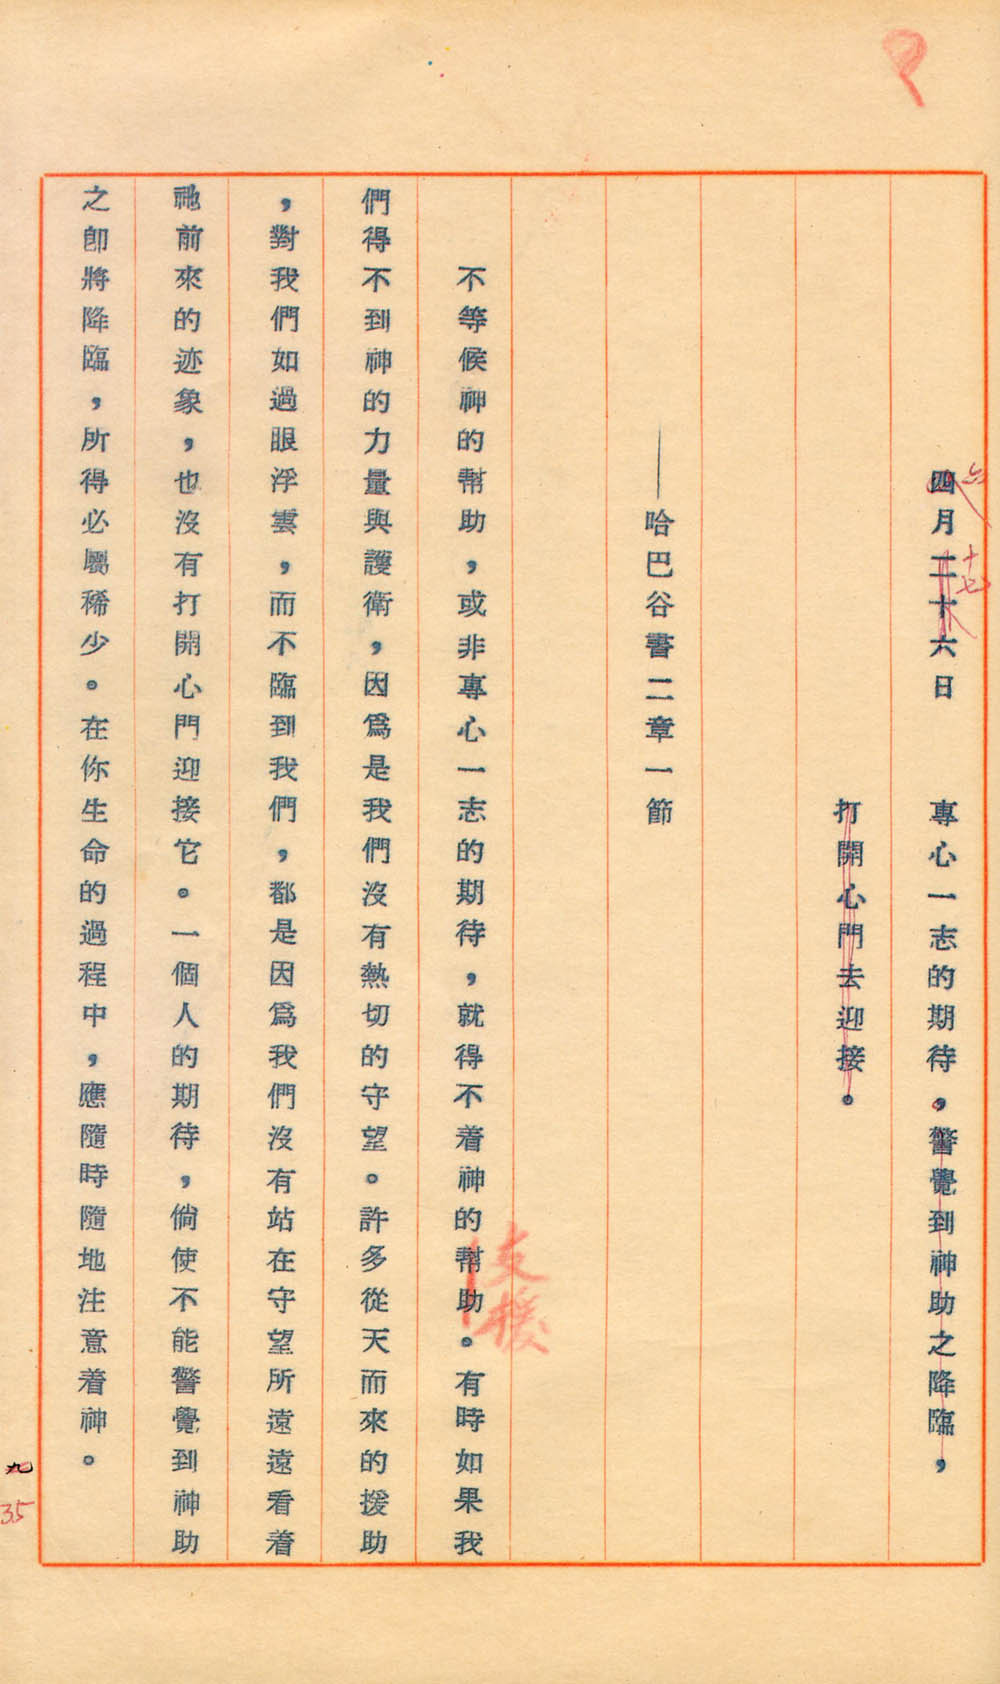 四月二十六日　專心一志的期待，警覺到神助之降臨，
六
十七
打開心門去迎接。
——哈巴谷書二章一節
不等候神的幫助，或非專心一志的期待，就得不着神的幫助。有時如果我
支援
們得不到神的力量與護衛，因爲是我們沒有熱切的守望。許多從天而來的援助
，對我們如過眼浮雲，而不臨到我們，都是因爲我們沒有站在守望所遠遠看着
祂前來的迹象，也沒有打開心門迎接它。一個人的期待，倘使不能警覺到神助
之卽將降臨，所得必屬稀少。在你生命的過程中，應隨時隨地注意着神。
九
35